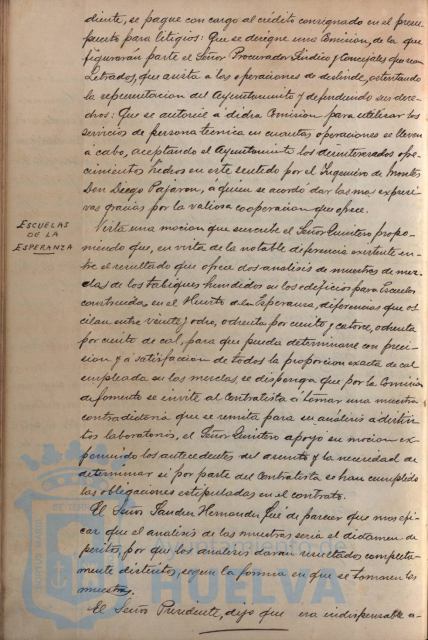 diente, se pague con cargo al crédito consignado en el presu-
puesto para litigios: Que se designe una Comision, de la que
figurarán parte el Señor Procurador Síndico y Concejales que sean
Letrados, que asista a las operaciones de deslinde, ostentando
la representacion del Ayuntamiento y defendiendo sus dere-
chos: Que se autorice a dicha Comision para utilizar los
servicios de persona técnica en cuantas operaciones se lleven
a cabo, aceptando el Ayuntamiento los desinteresados ofre-
cimientos hechos en este sentido por el Ingeniero de Montes
Don Diego Pajaron, a quien se acordó dar las mas expresi-
vas gracias por la valiosa cooperacion que ofrece.
ESCUELAS
DE LA
ESPERANZA
Vista una mocion que suscribe el Señor Quintero propo-
niendo que, en vista de la notable diferencia existente en-
tre el resultado que ofrece dos analisis de muestras de mez-
clas de los tabiques hundidos en los edificios para Escuelas
construidas en el Huerto de la Esperanza, diferencias que os-
cilan entre veinte y ocho, ochenta por ciento y catorce, ochenta
por ciento de cal, para que pueda determinarse con preci-
sion y a satisfacion de todos la proporcion exacta de cal
empleada en las mezclas, se disponga que por la Comision
de fomento se invite al Contratista a tomar una muestra
contradictoria que se remita para su análisis a distin-
tos laboratorios, el Señor Quintero apoyó su mocion ex-
poniendo los antecedentes del asunto y la necesidad de
determinar si por parte del Contratista se han cumplido
las obligaciones estipuladas en el contrato.
El Señor Sanchez Hernandez fué de parecer que mas efi-
caz que el analisis de las muestras seria el dictamen de
peritos, por que los analisis darán resultados completa-
mente distintos, segun la forma en que se tomaren las
muestras.
El Señor Presidente, dijo que era indispensable a-
HUELVA